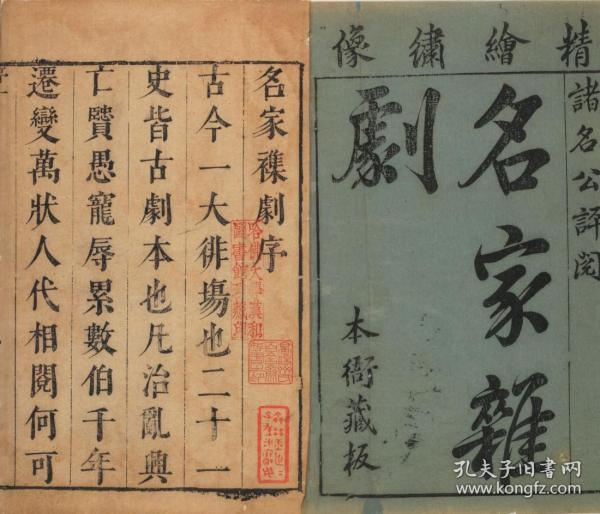 精繪繡像
諸名公評閱
名家雜
劇
本衙藏板
名家襍劇序
古今一大徘場也二十一
史皆古劇本也凡治亂興
亡賢愚寵辱累數伯千年
遷變萬狀人代相閱何可
哈佛大學漢和
圖書館珍藏印
孔夫子旧书网
www.kongfz.com